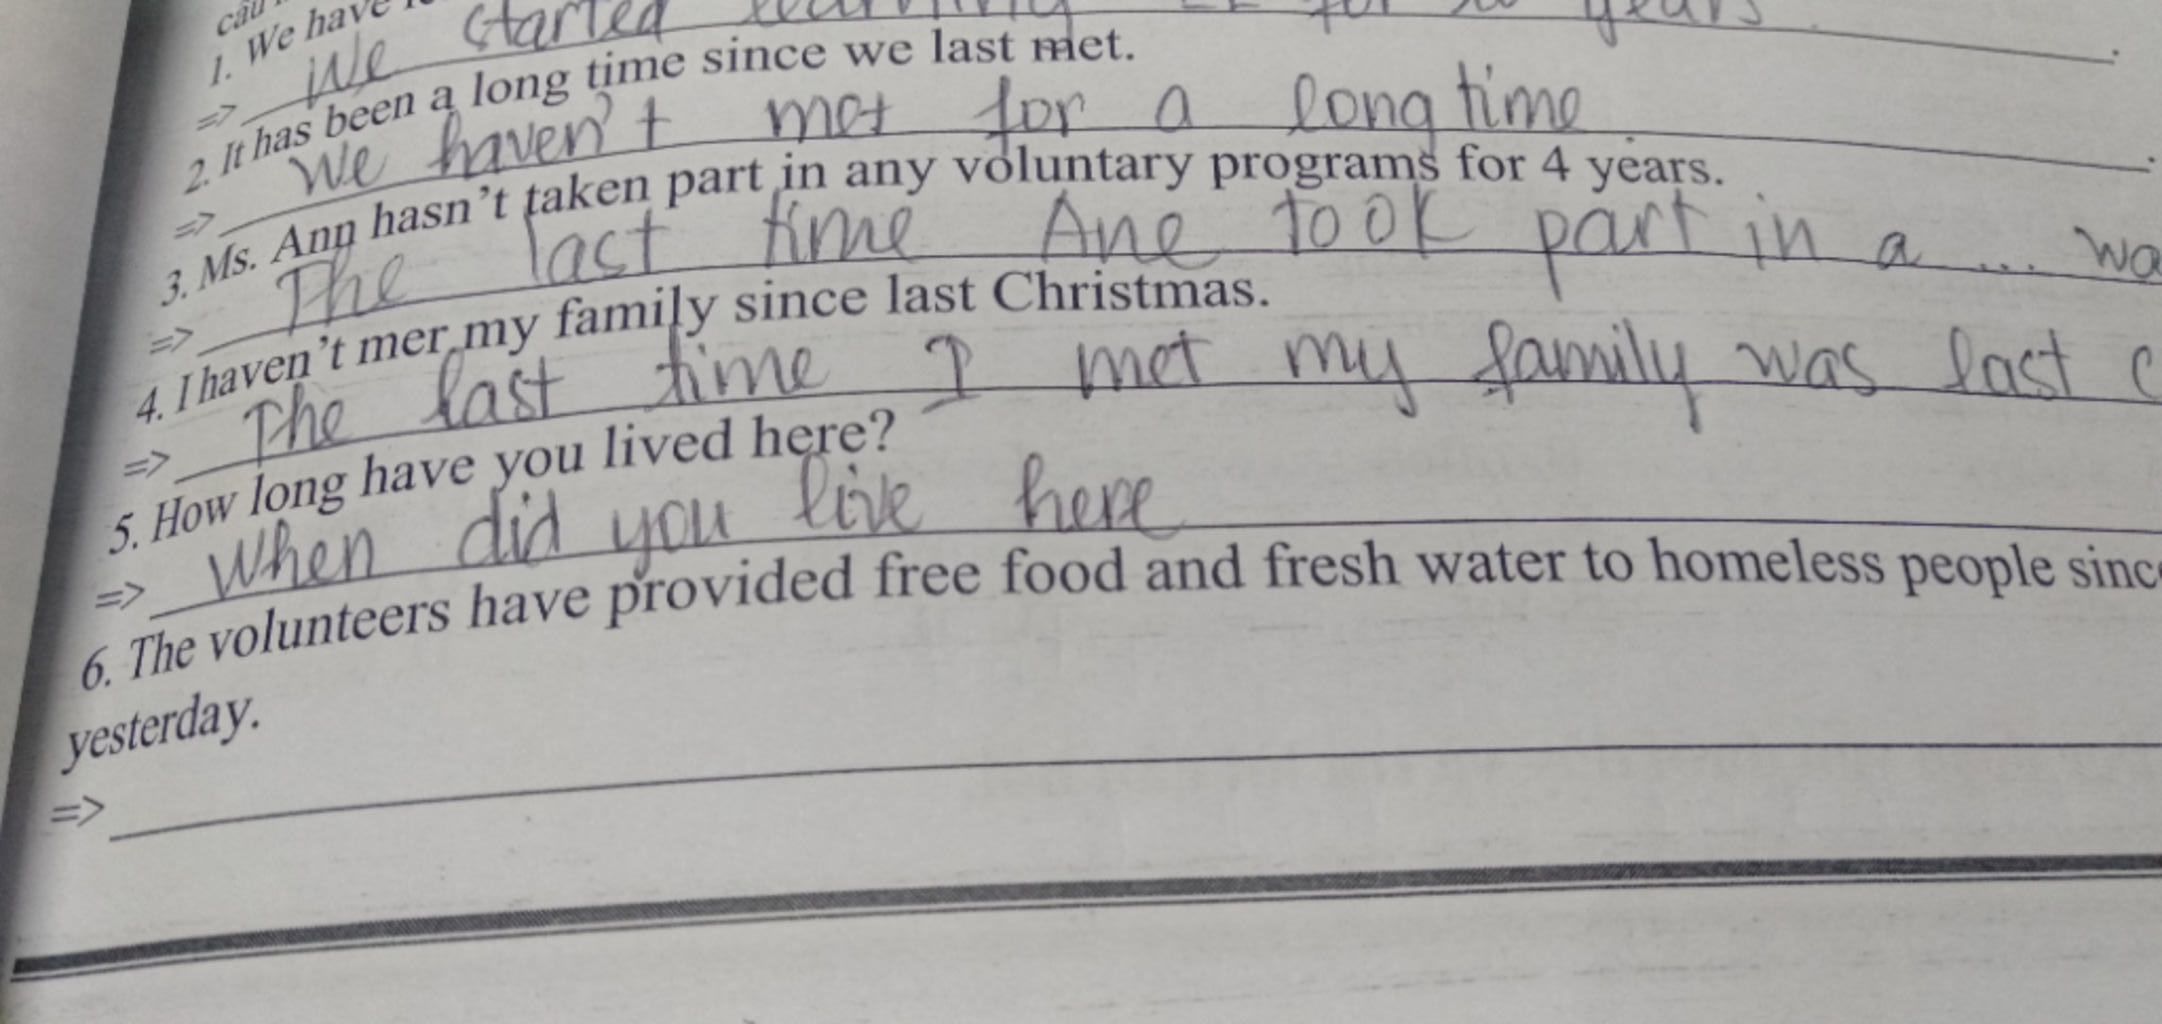 câu
1. We have
=> We started learning for years
2. It has been a long time since we last met.
=> We haven't met for a long time.
3. Ms. Ann hasn't taken part in any voluntary programs for 4 years.
=> The last time Ane took part in a ... wa
4. I haven't mer my family since last Christmas.
=> The last time I met my family was last C
5. How long have you lived here?
=> When did you live here
6. The volunteers have provided free food and fresh water to homeless people sinc
yesterday.
=>